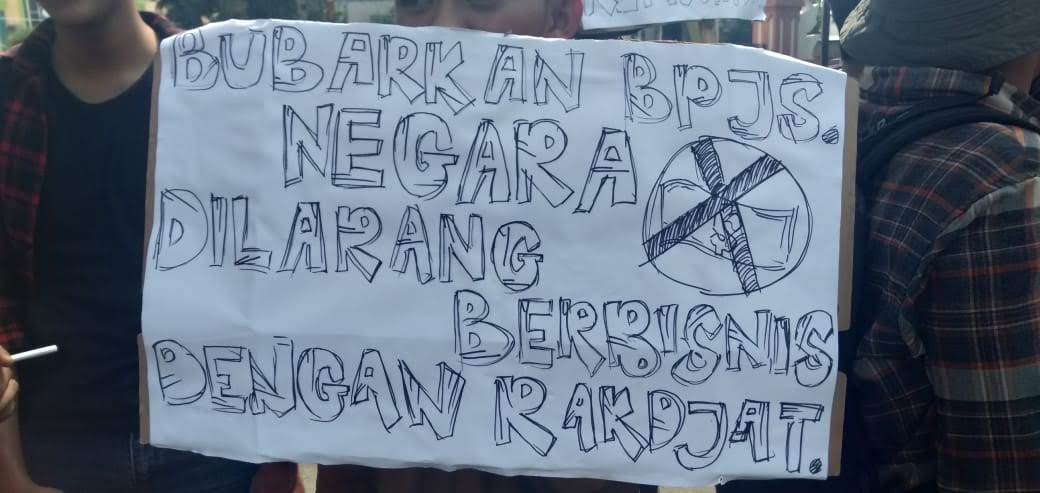 BUBARKAN BPJS.
NEGARA
DILARANG
BERBISNIS
DENGAN RAKDJAT.